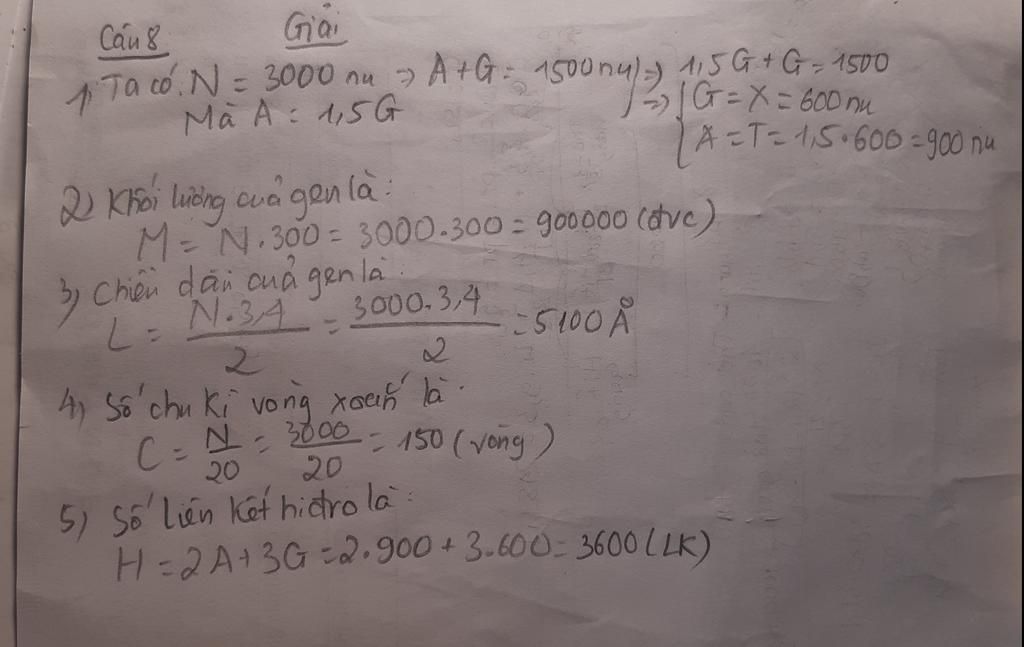 Câu 8 Giải
1, Ta có: N = 3000 nu => A+G = 1500 nu } => 1,5G + G = 1500
Mà A = 1,5 G => { G = X = 600 nu
A = T = 1,5 . 600 = 900 nu
2) Khối lượng của gen là:
M = N . 300 = 3000 . 300 = 900000 (đvc)
3) Chiều dài của gen là:
L = N . 3,4 / 2 = 3000 . 3,4 / 2 = 5100 Å
4) Số chu kì vòng xoắn là:
C = N / 20 = 3000 / 20 = 150 (vòng)
5) Số liên kết hiđro là:
H = 2A + 3G = 2 . 900 + 3 . 600 = 3600 (LK)